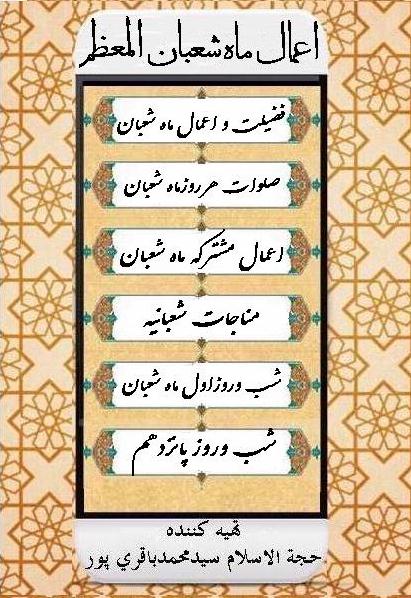 اعمال ماه شعبان المعظم
فضیلت و اعمال ماه شعبان
صلوات هر روز ماه شعبان
اعمال مشترکه ماه شعبان
مناجات شعبانیه
شب و روز اول ماه شعبان
شب و روز پانزدهم
تهیه کننده
حجة الاسلام سیدمحمدباقري پور